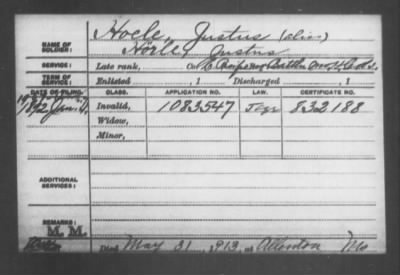 Hoele, Justus (alias)
NAME OF SOLDIER:
Hörle, Justus
SERVICE: Late rank, Co.
TERM OF SERVICE: Enlisted , 1 Discharged , 1
DATE OF FILING. CLASS. APPLICATION NO. LAW. CERTIFICATE NO.
1892 Jan. Invalid, 1083547 832188
Widow,
Minor,
ADDITIONAL SERVICES:
REMARKS:
M. M.
Died May 31, 1913, at Mo